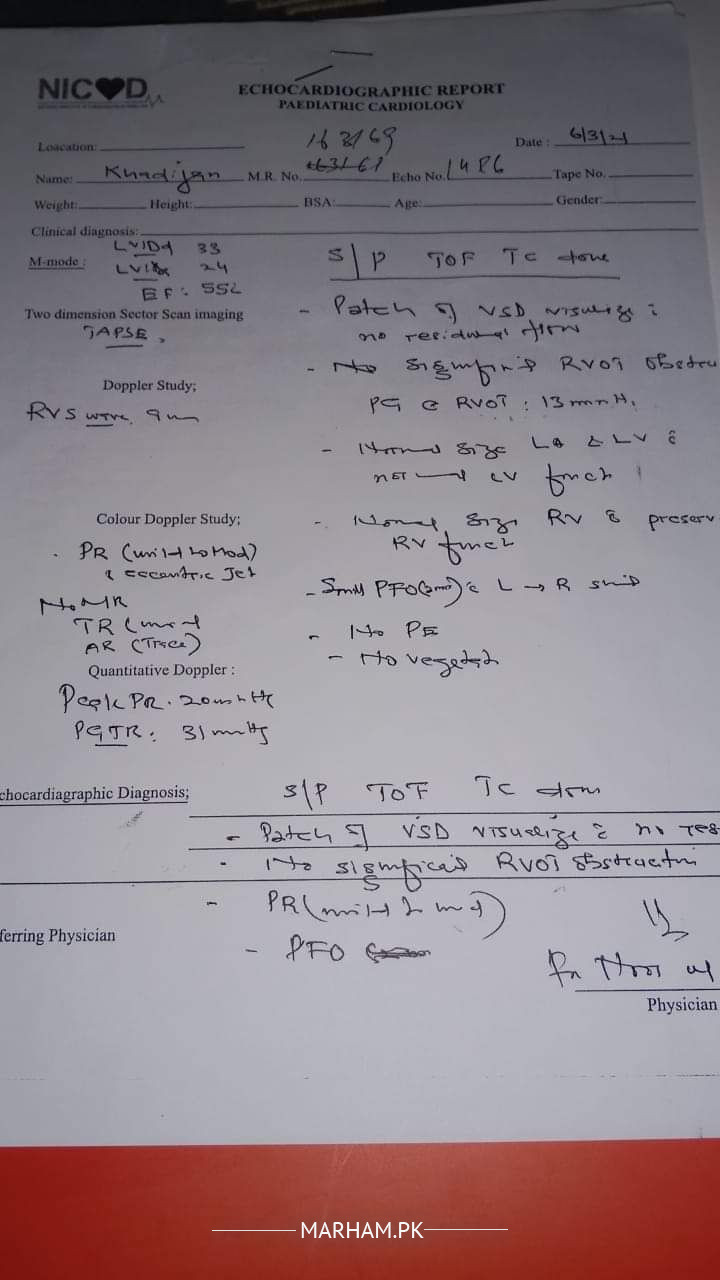 NICVD
ECHOCARDIOGRAPHIC REPORT
PAEDIATRIC CARDIOLOGY
Loacation:
163169
Date : 6/3/21
Name: Khadijan M.R. No. Echo No. 1486 Tape No.
Weight: Height: BSA: Age: Gender:
Clinical diagnosis:
M-mode :
LVIDd 33
24
EF: 55%
S/P TOF TC done
Two dimension Sector Scan imaging
TAPSE,
- Patch of VSD visualize c̄
no residual flow
- No RVOT obstru
PG @ RVOT : 13 mmHg
Doppler Study;
RVS wave 9 cm
- Normal size LA & LV c̄
LV funch
Colour Doppler Study;
. PR (mild to Mod)
c̄ eccentric Jet
No MR
TR (
AR (Trace)
- Normal size RV c̄ preserv
RV funch
- Small PFO c̄ L → R shunt
- No PE
- No vegetat
Quantitative Doppler :
Peak PR. 20 mmHg
PGTR: 31 mmHg
chocardiagraphic Diagnosis;
S/P TOF TC done
- Patch of VSD visualize c̄ no res
- No significant RVOT obstruction
- PR (mild to mod)
- PFO
ferring Physician
Physician
MARHAM.PK